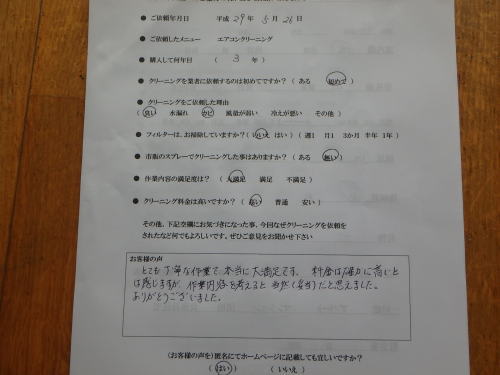 ● ご依頼年月日 平成 29 年 5 月 26 日
● ご依頼したメニュー エアコンクリーニング
● 購入して何年目 ( 3 年)
● クリーニングを業者に依頼するのは初めてですか? ( ある 初めて )
● クリーニングをご依頼した理由
( 臭い 水漏れ カビ 風量が弱い 冷えが悪い その他 )
● フィルターは、お掃除していますか? ( いいえ はい ) ( 週1 月1 3か月 半年 1年 )
● 市販のスプレーでクリーニングした事はありますか? ( ある 無い )
● 作業内容の満足度は? ( 大満足 満足 不満足 )
● クリーニング料金は高いですか? ( 高い 普通 安い )
その他、下記空欄にお気づきになった事、今回なぜクリーニングを依頼を
されたなど何でもよろしいです。ぜひご意見をお聞かせ下さい
お客様の声
とても丁寧な作業で本当に大満足です。 料金は確かに高いと
は感じますが、作業内容を考えると 当然(妥当)だと思えました。
ありがとうございました。
(お客様の声を)匿名にてホームページに記載しても宜しいですか?
( はい ) ( いいえ )